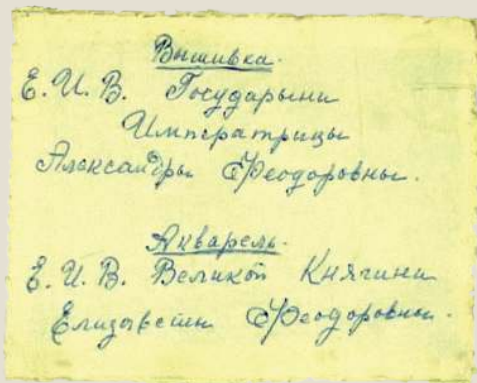 Вышивка.
Е. И. В. Государыни
Императрицы
Александры Феодоровны.
Акварель.
Е. И. В. Великой Княгини
Елизаветы Феодоровны.